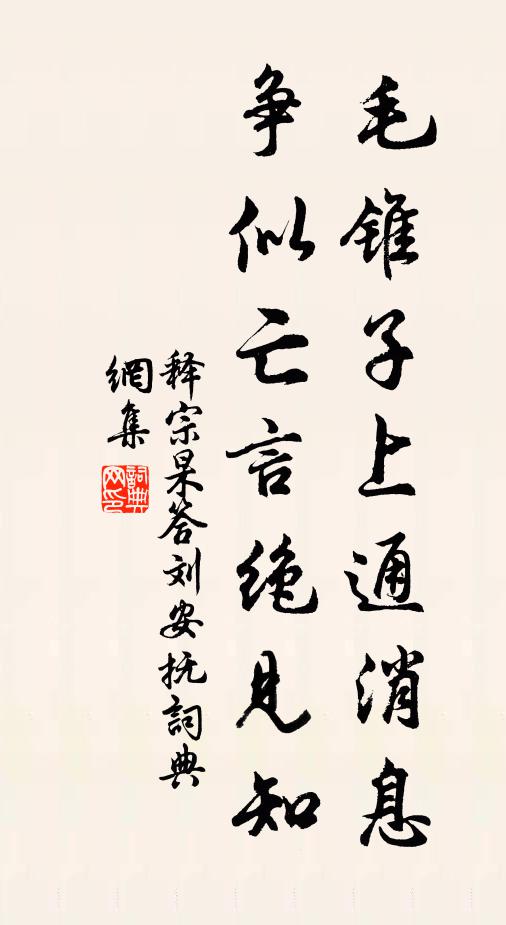 毛锥子上通消息
争似亡言绝见知
释宗杲答刘安抚詞典
網集
詞典網印